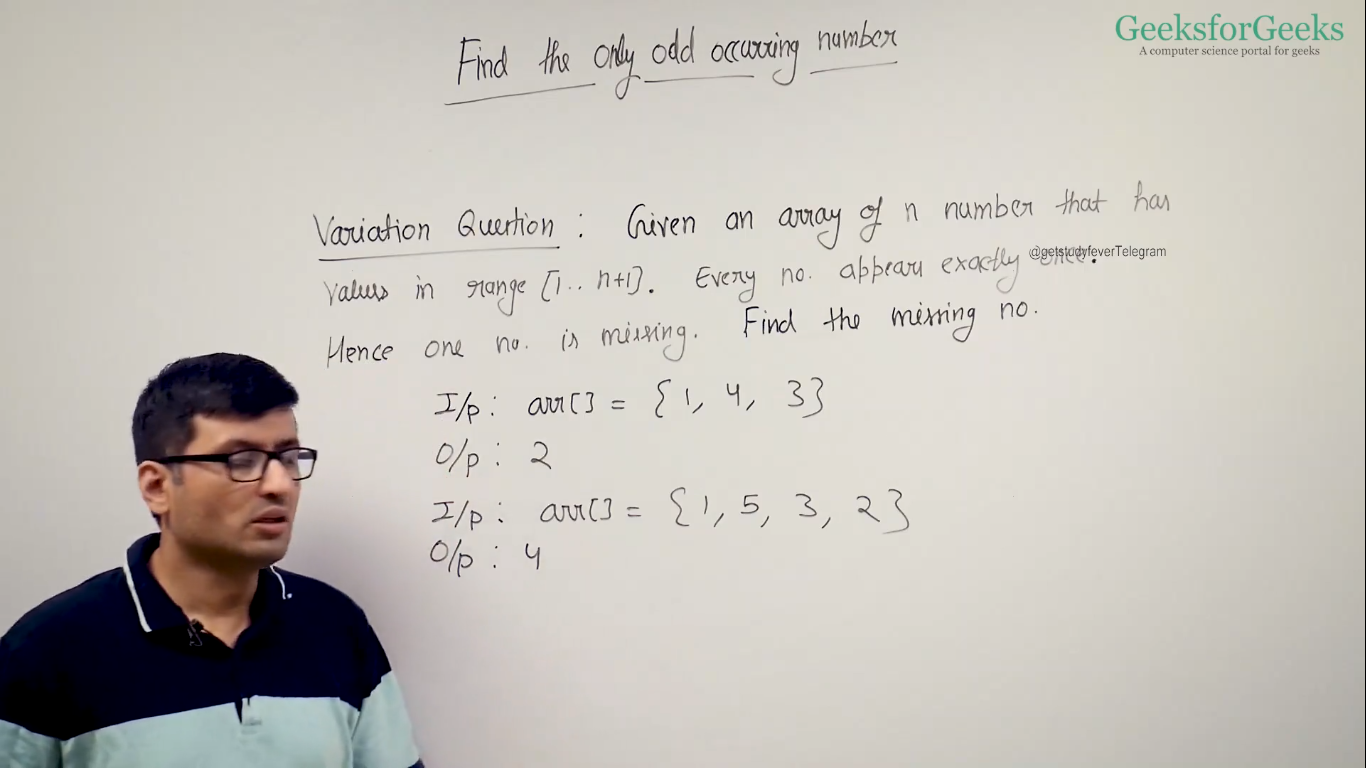 GeeksforGeeks
A computer science portal for geeks
Find the only odd occurring number
Variation Question : Given an array of n number that has
@getstudyfeverTelegram
values in range [1.. n+1]. Every no. appears exactly once.
Hence one no. is missing. Find the missing no.
I/p : arr[] = {1, 4, 3}
O/p : 2
I/p : arr[] = {1, 5, 3, 2}
O/p : 4